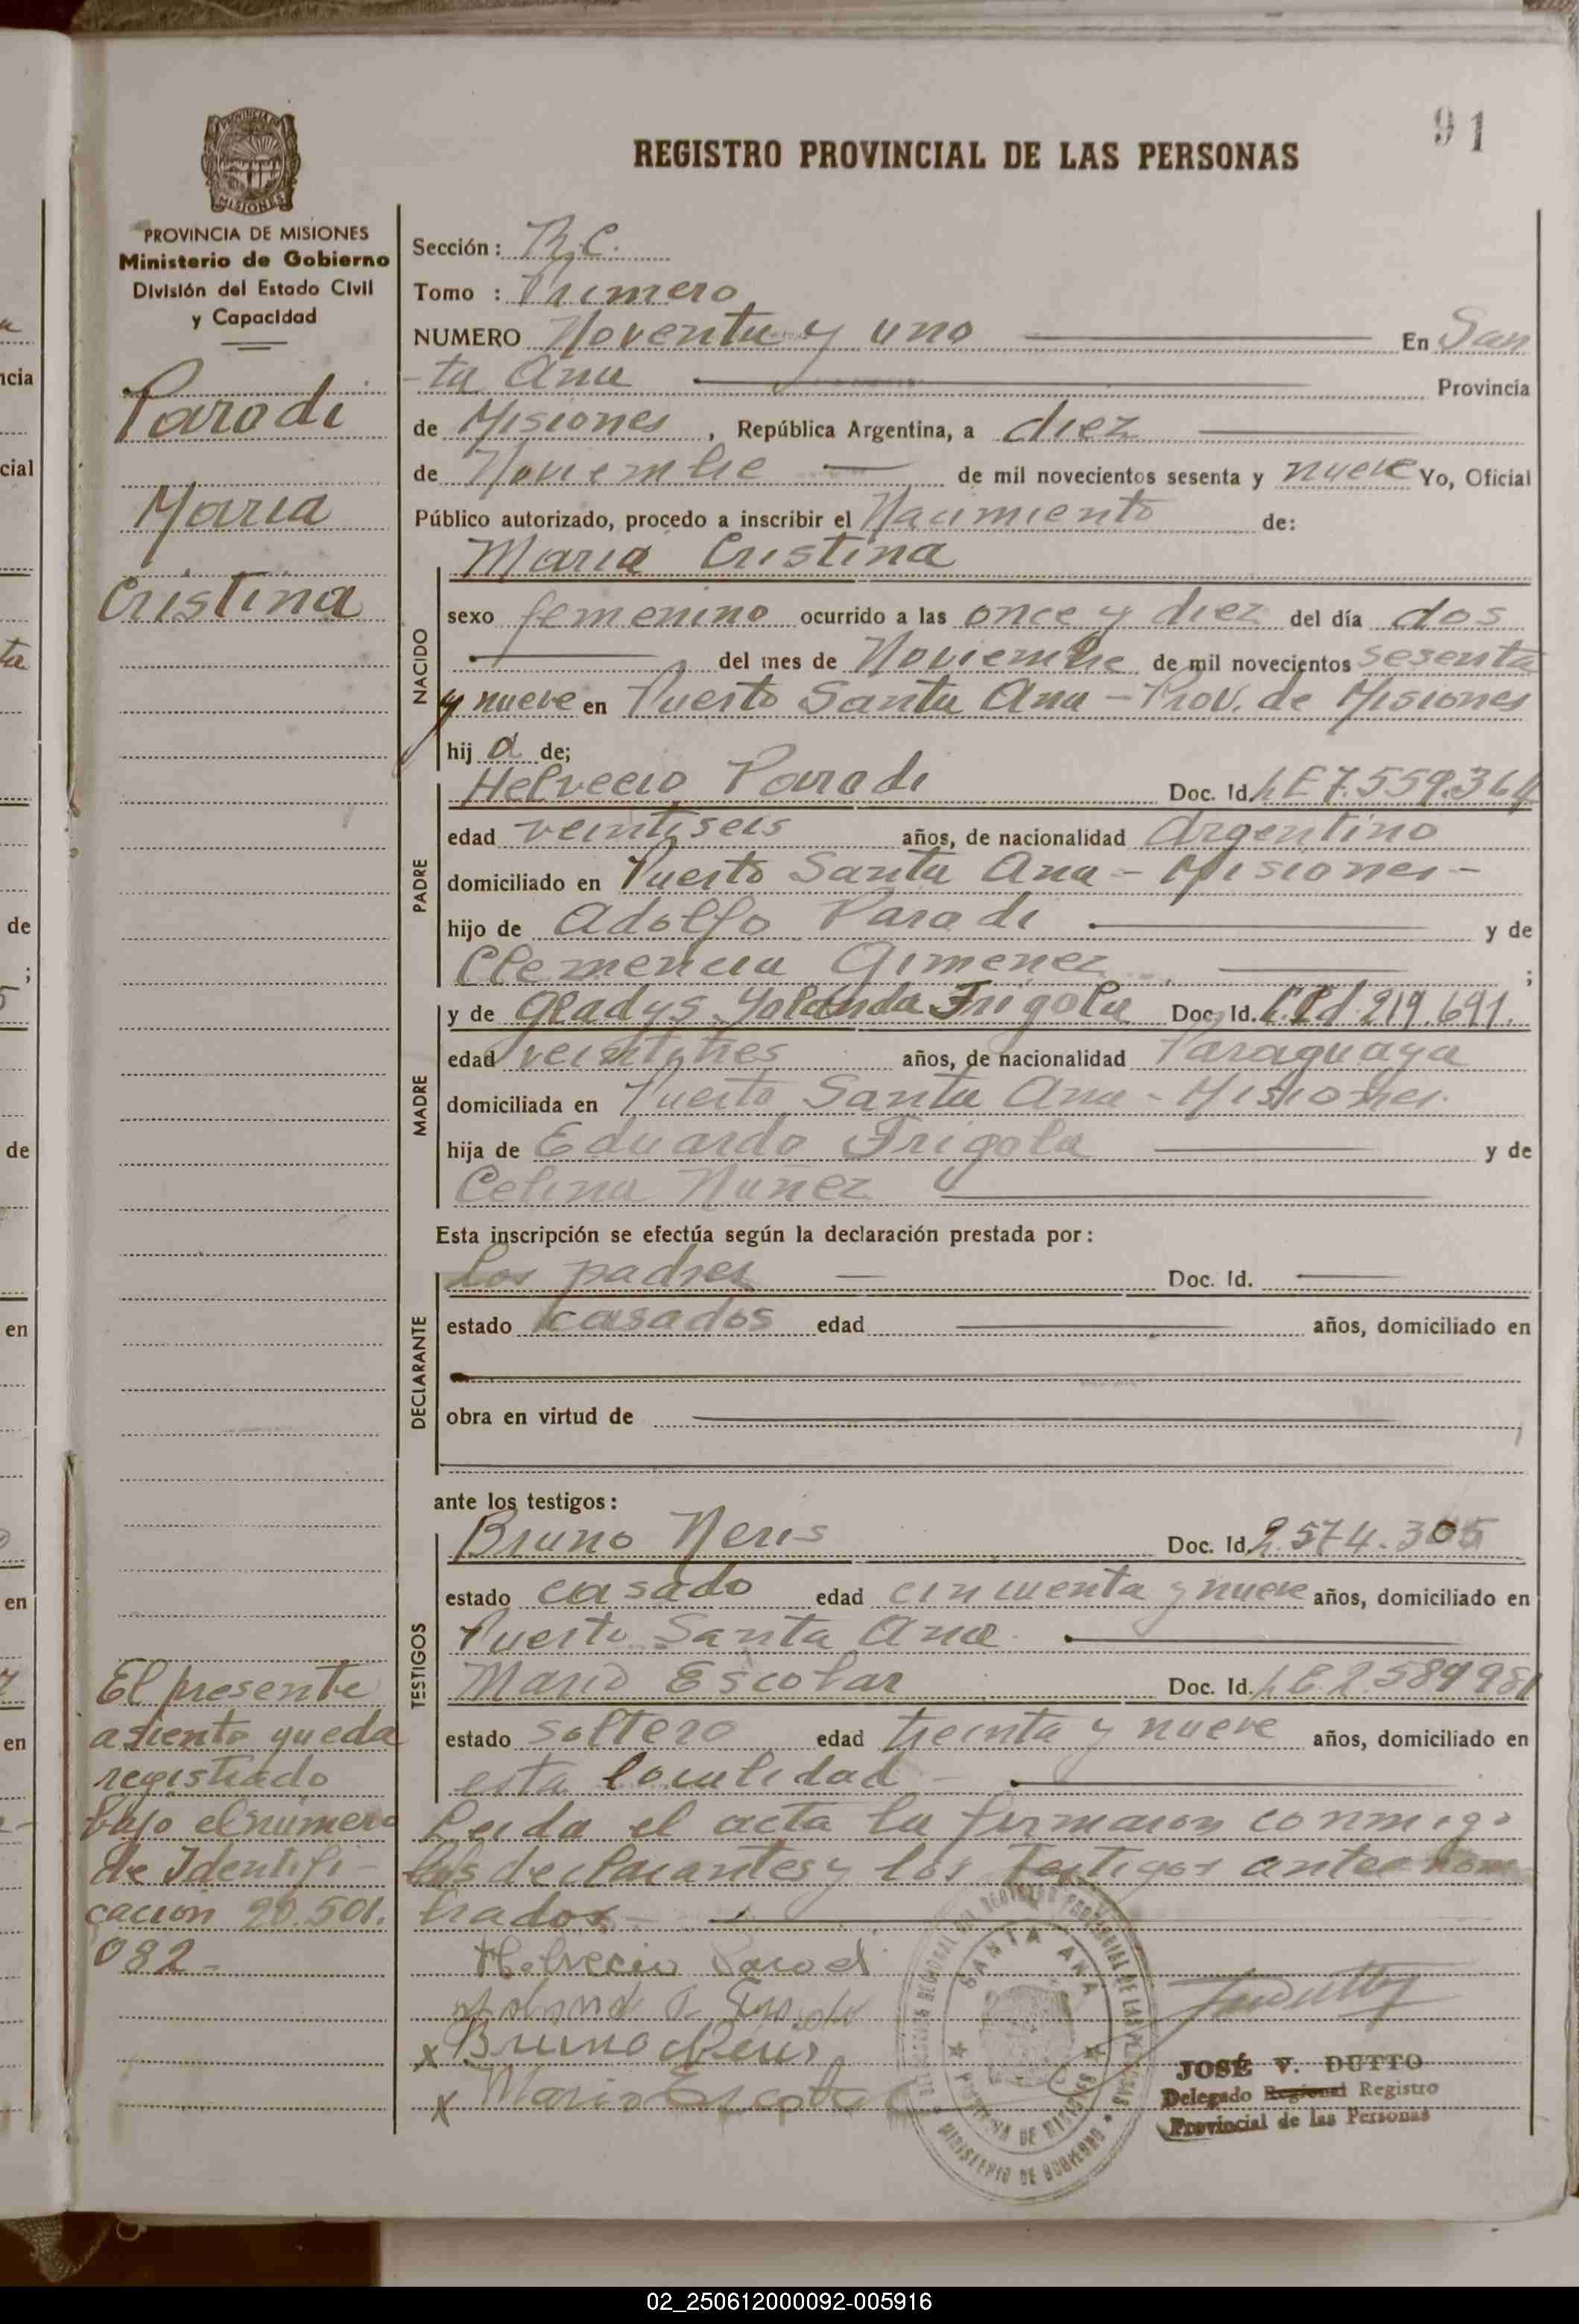 91
REGISTRO PROVINCIAL DE LAS PERSONAS
PROVINCIA DE MISIONES
Ministerio de Gobierno
División del Estado Civil
y Capacidad
Parodi
Maria
Cristina
Sección: R.C.
Tomo : Primero
NUMERO Noventa y uno En San
-ta Ana Provincia
de Misiones, República Argentina, a diez
de Noviembre de mil novecientos sesenta y nueve Yo, Oficial
Público autorizado, procedo a inscribir el Nacimiento de:
NACIDO
Maria Cristina
sexo femenino ocurrido a las once y diez del día dos
del mes de Noviembre de mil novecientos sesenta
y nueve en Puerto Santa Ana - Prov. de Misiones
hij a de;
PADRE
Helvecio Parodi Doc. Id. LE 7.559.364
edad veintiseis años, de nacionalidad Argentino
domiciliado en Puerto Santa Ana - Misiones -
hijo de Adolfo Parodi y de
Clemencia Gimenez ;
MADRE
y de Gladys Yolanda Frigola Doc. Id. 219.691.
edad veintitres años, de nacionalidad Paraguaya
domiciliada en Puerto Santa Ana - Misiones.
hija de Eduardo Frigola y de
Celina Nuñez
Esta inscripción se efectúa según la declaración prestada por:
DECLARANTE
los padres Doc. Id.
estado casados edad años, domiciliado en
obra en virtud de
ante los testigos:
TESTIGOS
Bruno Neris Doc. Id. 2.574.305
estado casado edad cincuenta y nueve años, domiciliado en
Puerto Santa Ana
Mario Escobar Doc. Id. LE 2.589981
estado soltero edad treinta y nueve años, domiciliado en
esta localidad -
Leida el acta la firmaron conmigo
los declarantes y los Testigos antes nom
brados -
El presente
asiento queda
registrado
bajo el número
de Identifi-
cación 20.501.
082-
Helvecio Parodi
x Bruno Neris
x Mario Escobar
SANTA ANA
MINISTERIO DE GOBIERNO
JOSÉ V. DUTTO
Delegado Regional Registro
Provincial de las Personas
02_250612000092-005916